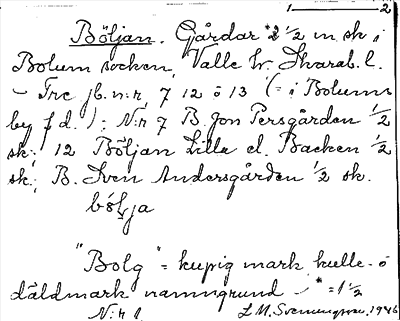 1 — 2
Böljan. Gårdar *2 1/2 m sk i
Bolum socken, Valle hr. Skarab. l.
— Tre jb. n:r 7 12 o 13 (= i Bolums
by f d.); N:r 7 B. Jon Persgården 1/2
sk; 12 Böljan Lilla el. Backen 1/2
sk; B. Sven Andersgården 1/2 sk.
bölja
"Bolg" = kupig mark, kulle- o
däldmark namngrund — * = 1 1/2
N:r 1 L. M. Svenungsson, 1946